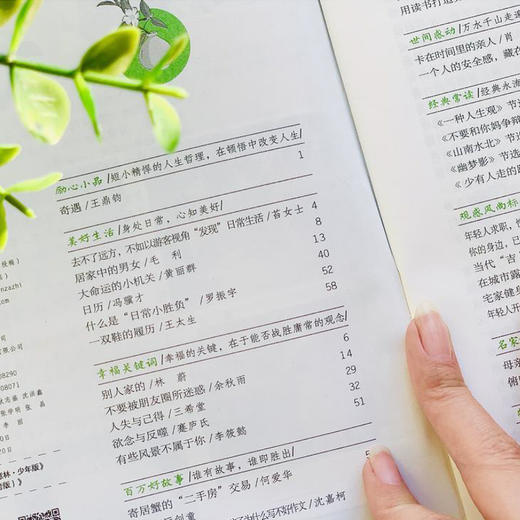 励心小品/短小精悍的人生哲理，在领悟中改变人生
奇遇/王鼎钧 1
美好生活/身处日常，心知美好/
去不了远方，不如以游客视角“发现”日常生活/苔女士 4
居家中的男女/毛 利 8
大命运的小机关/黄丽群 13
日历/冯骥才 40
什么是“日常小胜负”/罗振宇 52
一双鞋的履历/王太生 58
幸福关键词/幸福的关键，在于能否战胜庸常的观念/
别人家的/林 蔚 6
不要被朋友圈所迷惑/余秋雨 14
人失与己得/三希堂 29
欲念与反噬/蹇庐氏 32
有些风景不属于你/李筱懿 51
百万好故事/谁有故事，谁即胜出/
寄居蟹的“二手房”交易/何爱华
为什么写不好作文/沈嘉柯
用读书打造
世间感动/万水千山走
卡在时间里的亲人/肖
一个人的安全感，藏在
经典常读/经典永流
《一种人生观》节
《不要和你妈争辩
《山南水北》节选
《幽梦影》节选
《少有人走的
观感风尚标
年轻人求职，
你的身边，已
当代“吉
在城市露
宅家健身
年轻人开
名家
母亲
俯
有限公司
08290
08071
20
20
意林·少年版